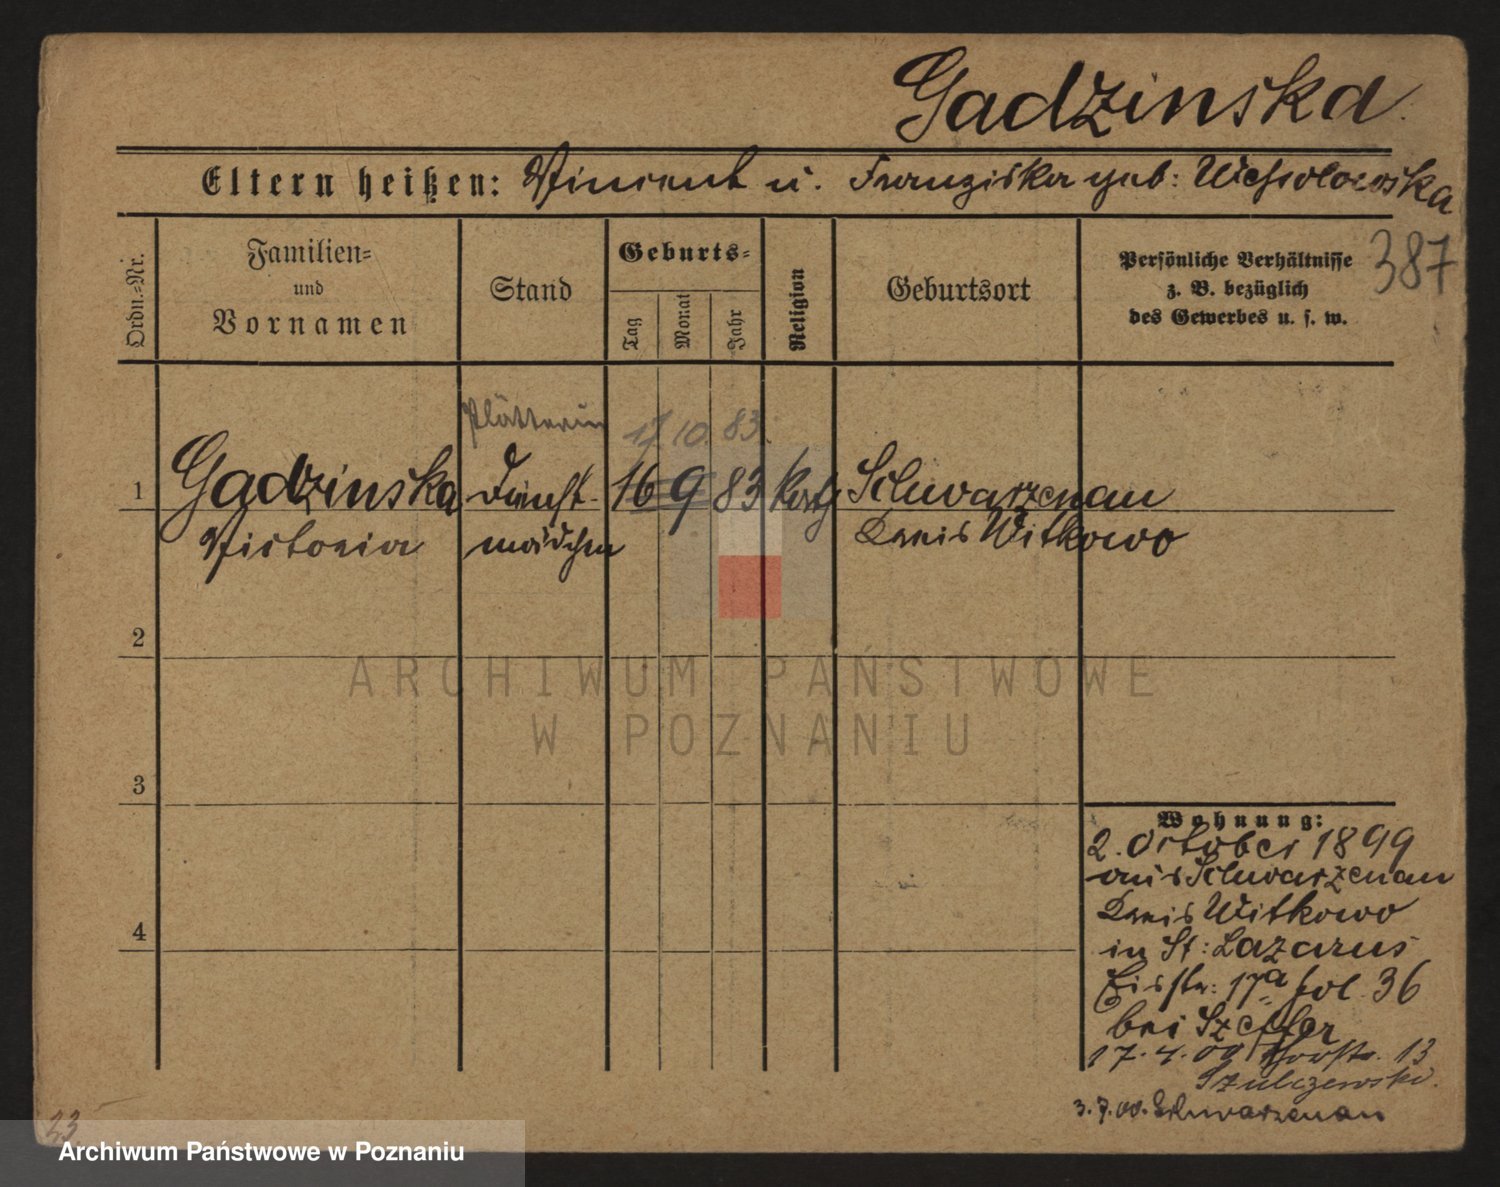 Gadzinska.
Eltern heißen: Vincent u. Franziska geb:
387
Ordn.-Nr.
Familien- und Vornamen
Stand
Geburts-
Tag
Monat
Jahr
Religion
Geburtsort
Persönliche Verhältnisse
z. B. bezüglich
des Gewerbes u. s. w.
Plätterin
17 10. 83.
1 Gadzinska Dienst- 16 9 83 kath Schwarzenau
Victoria mädchen Kreis Witkowo
2
ARCHIWUM PAŃSTWOWE
W POZNANIU
3
4
Wohnung:
2. October 1899
aus Schwarzenau
Kreis Witkowo
in St: Lazarus
Eisstr: 17a fol. 36
bei
17.4.00 13
Szulczewski.
3.7.00. Schwarzenau
23
Archiwum Państwowe w Poznaniu